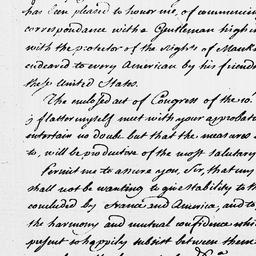 has been pleased to honor me, of commencing
correspondance with a Gentleman high in
with the protector of the Rights of Mank
endeared to every American by his friends
these United States.
The inclosed act of Congress of the 10.
I flatter myself meet with your approbat
entertain no doubt but that the measures
to, will be productive of the most salutary
Permit me to assure you, Sir, that my
shall not be wanting to give stability to th
concluded by France and America, and to
the harmony and mutual confidence whi
present so happily subsist between them